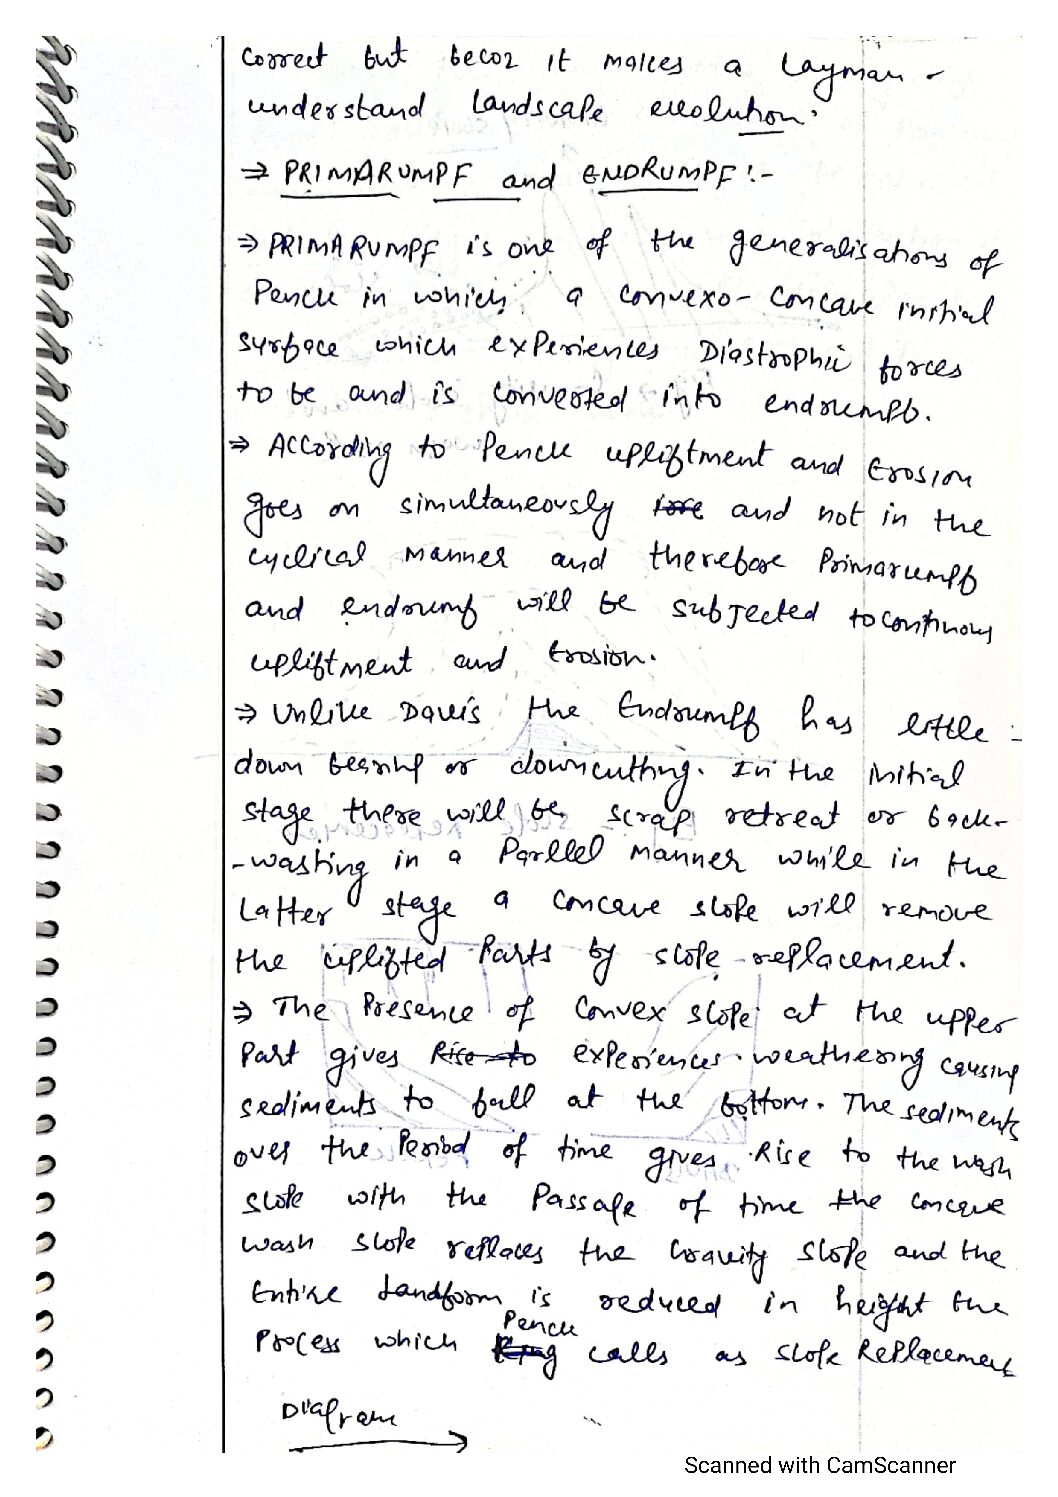 correct but becoz it makes a Layman -
understand Landscape evolution.
⇒ PRIMARUMPF and ENDRUMPF :-
⇒ PRIMARUMPF is one of the generalisations of
Penck in which a convexo - concave initial
surface which experiences Diastrophic forces
to be and is converted into endrumpf.
⇒ According to Penck upliftment and Erosion
goes on simultaneously and not in the
cyclical manner and therefore Primarumpf
and endrumf will be subjected to continous
upliftment and Erosion.
⇒ Unlike Davis the Endrumpf has little
down bearing or downcutting. In the initial
stage there will be scrap retreat or back-
-wasting in a Parllel manner while in the
Latter stage a concave slope will remove
the uplifted Parts by slope replacement.
⇒ The Presence of Convex slope at the upper
Part gives Rise to experiences weathering causing
sediments to fall at the bottom. The sediments
over the Period of time gives Rise to the wash
slope with the Passage of time the concave
wash slope replaces the Gravity slope and the
Entire Landform is reduced in height the
Process which Penck calls as slope Replacement
Diagram
Scanned with CamScanner